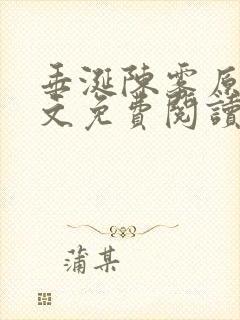 垂涎陳雾原
文免費閱讀
蒲某